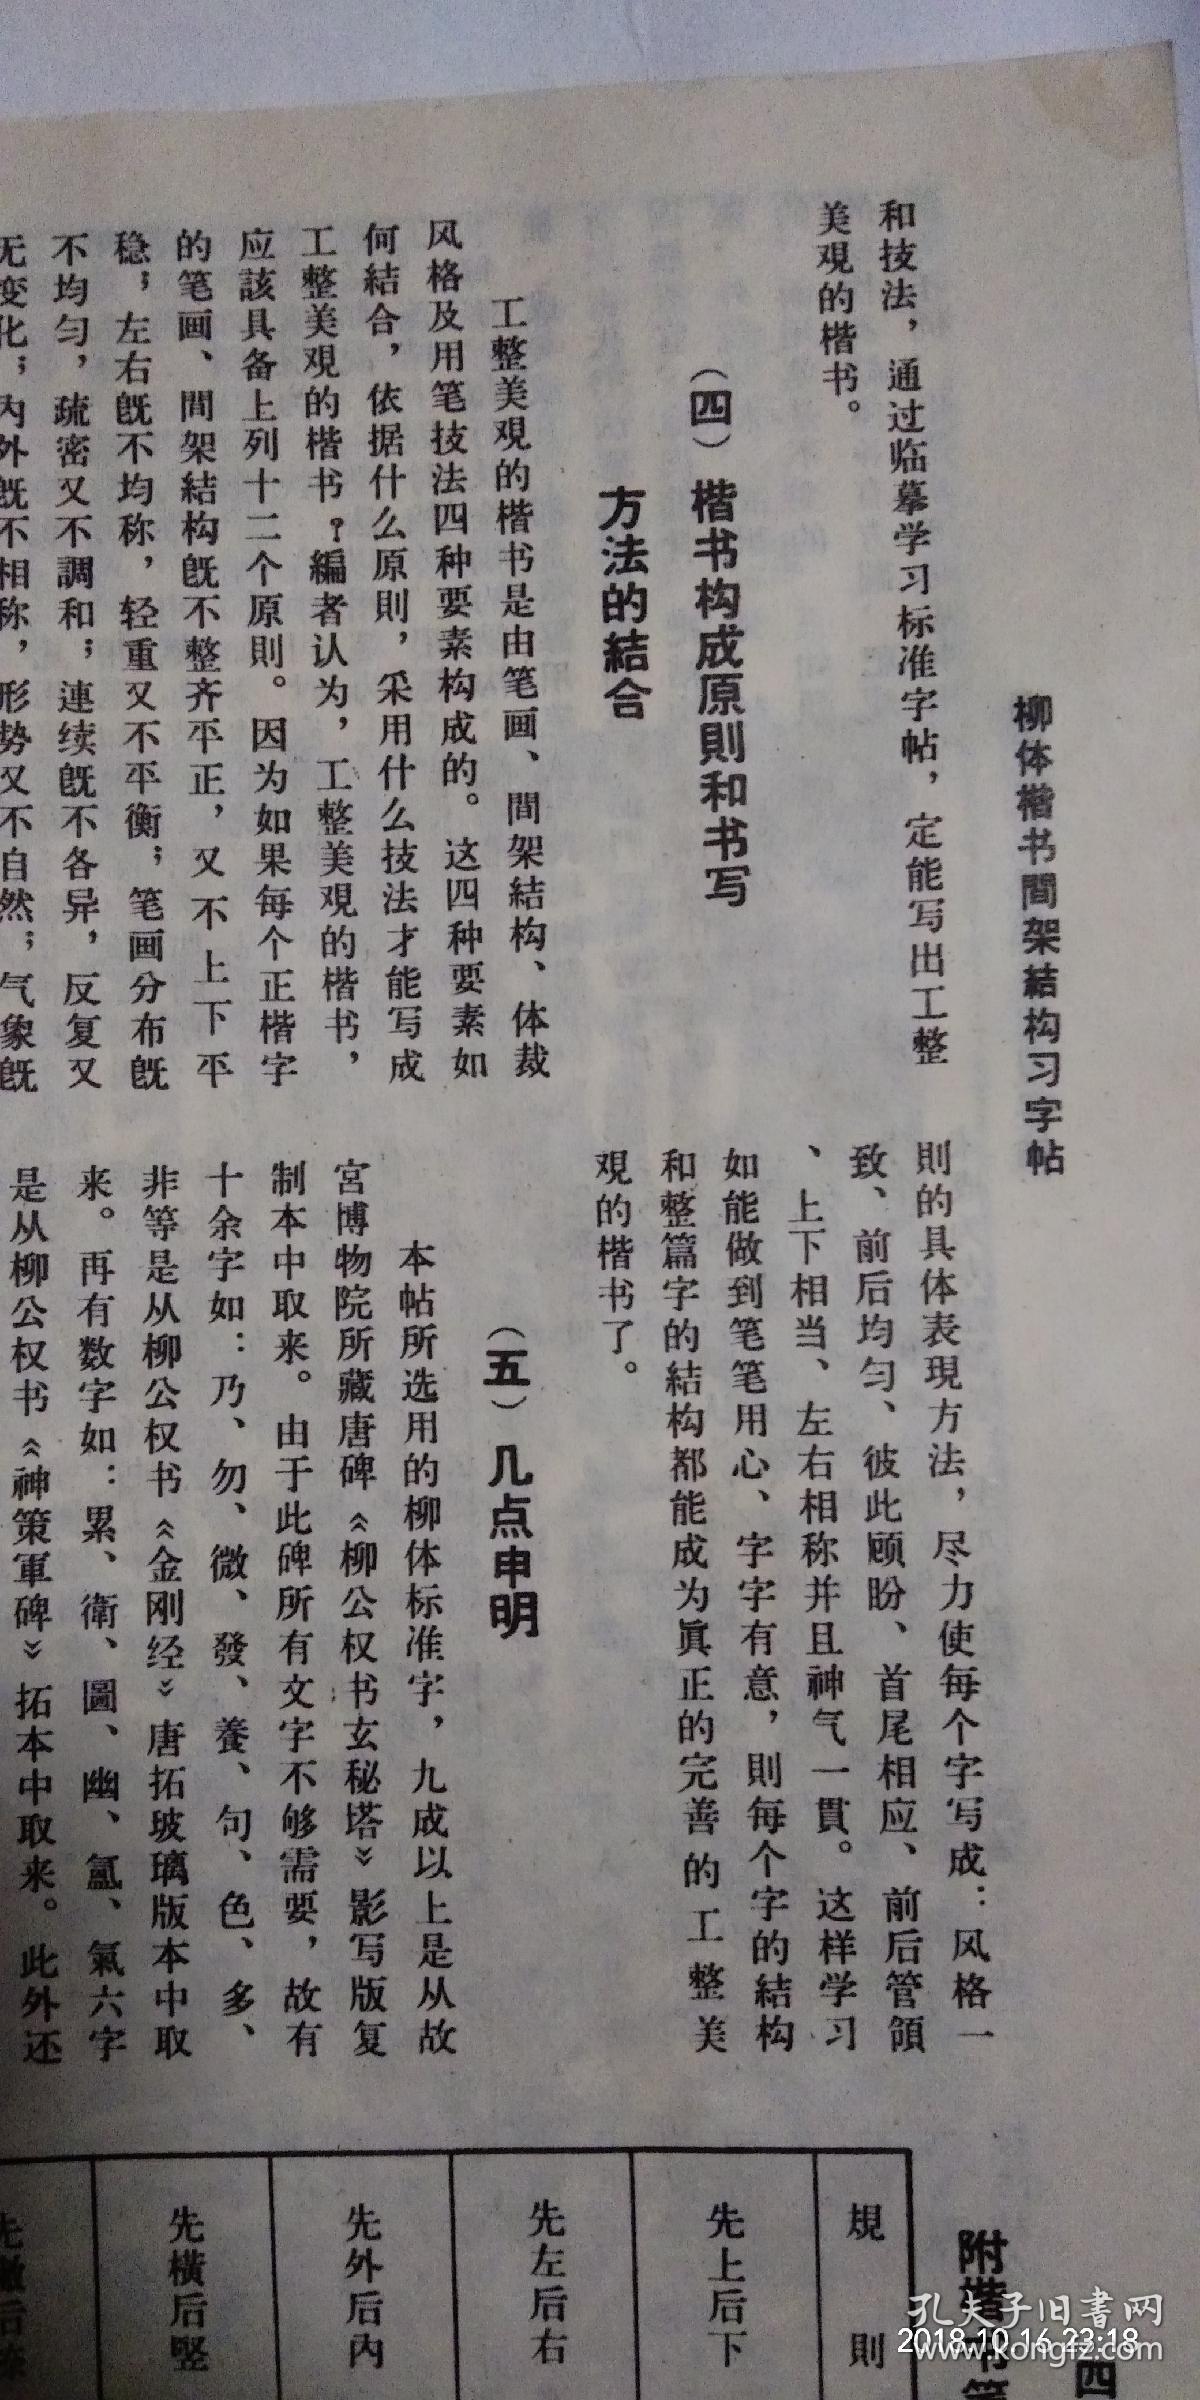 柳体楷书間架結构习字帖
和技法，通过临摹学习标准字帖，定能写出工整
美观的楷书。
（四）楷书构成原則和书写
方法的結合
工整美观的楷书是由笔画、間架結构、体裁
风格及用笔技法四种要素构成的。这四种要素如
何結合，依据什么原則，采用什么技法才能写成
工整美观的楷书？編者认为，工整美观的楷书，
应該具备上列十二个原則。因为如果每个正楷字
的笔画、間架結构旣不整齐平正，又不上下平
稳；左右旣不均称，轻重又不平衡；笔画分布旣
不均匀，疏密又不調和；連续旣不各异，反复又
无变化；內外旣不相称，形势又不自然；气象旣
則的具体表現方法，尽力使每个字写成：风格一
致、前后均匀、彼此顾盼、首尾相应、前后管領
、上下相当、左右相称并且神气一貫。这样学习
如能做到笔笔用心、字字有意，則每个字的結构
和整篇字的結构都能成为眞正的完善的工整美
观的楷书了。
（五）几点申明
本帖所选用的柳体标准字，九成以上是从故
宮博物院所藏唐碑《柳公权书玄秘塔》影写版复
制本中取来。由于此碑所有文字不够需要，故有
十余字如：乃、勿、微、發、養、句、色、多、
非等是从柳公权书《金刚经》唐拓玻璃版本中取
来。再有数字如：累、衛、圖、幽、氳、氣六字
是从柳公权书《神策軍碑》拓本中取来。此外还
四
附楷书笔
規則
先上后下
先左后右
先外后內
先橫后竪
先撇后捺
孔夫子旧书网
www.kongfz.com
2018.10.16 23:18